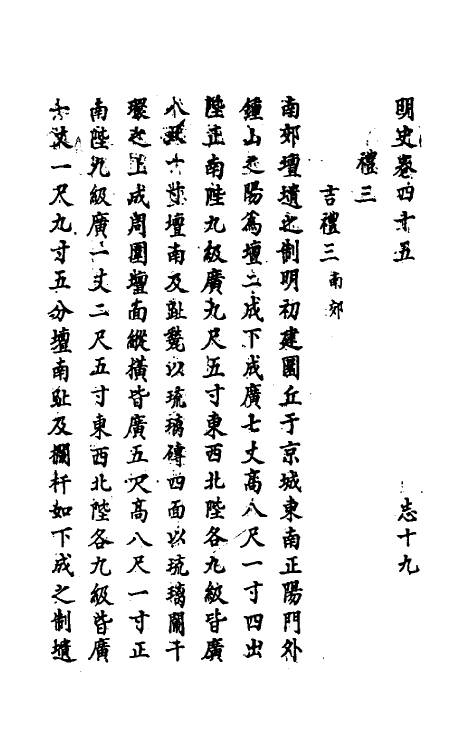 明史卷四十五 志十九
禮三
吉禮三 南郊
南郊壇壝之制明初建圜丘于京城東南正陽門外
鍾山之陽為壇二成下成廣七丈高八尺一寸四出
陛正南陛九級廣九尺五寸東西北陛各九級皆廣
八尺一寸壇南及趾甃以琉璃磚四面以琉璃闌干
環之上成周圍壇面縱橫皆廣五尺高八尺一寸正
南陛九級廣一丈二尺五寸東西北陛各九級皆廣
一丈一尺九寸五分壇南趾及欄杆如下成之制壝